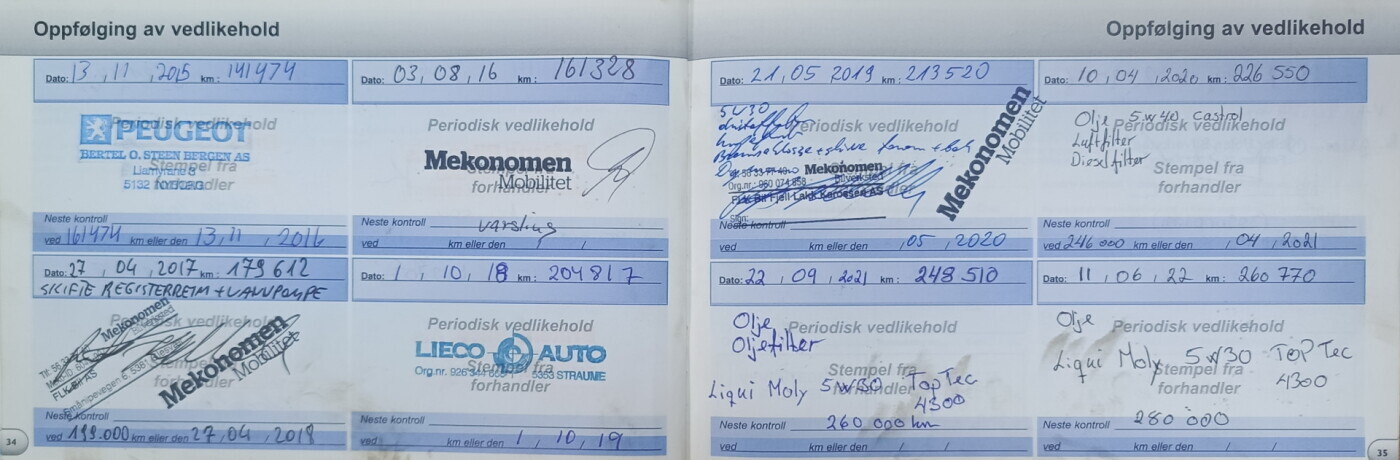 Oppfølging av vedlikehold
Dato: 13, 11, 2015 km: 141474
Periodisk vedlikehold
PEUGEOT
BERTEL O. STEEN BERGEN AS
Stempel fra
Liamyrane 3
5132 NYBORG
forhandler
Neste kontroll
ved 161474 km eller den 13, 11, 2016
Dato: 03, 08, 16 km: 161328
Periodisk vedlikehold
Mekonomen
Mobilitet
Stempel fra
forhandler
Neste kontroll varsling
ved km eller den / /
Dato: 27, 04, 2017 km: 179612
SKIFTE REGISTERREIM + VANNPUMPE
Periodisk vedlikehold
Mekonomen
Bilverksted
FLK-Bil AS
Mekonomen
Mobilitet
Neste kontroll
ved 199.000 km eller den 27, 04, 2018
Dato: 1, 10, 18 km: 204817
Periodisk vedlikehold
LIECO AUTO
Stempel fra
Org.nr. 926 5353 STRAUME
forhandler
Neste kontroll
ved km eller den 1, 10, 19
34
Oppfølging av vedlikehold
Dato: 21, 05 2019 km: 213520
5W30
Periodisk vedlikehold
Mekonomen
Bilverksted
Org.nr.: 960 074 858
FLK Bil Fjell Lakk Karosseri AS
forhandler
Sign:
Mekonomen
Mobilitet
Neste kontroll
ved km eller den , 05, 2020
Dato: 10, 04, 2020 km: 226 550
Olje 5w40 Castrol
Periodisk vedlikehold
Luftfilter
Dieselfilter
Stempel fra
forhandler
Neste kontroll
ved 246 000 km eller den , 04, 2021
Dato: 22, 09, 2021 km: 248 510
Olje
Periodisk vedlikehold
Oljefilter
Stempel fra
Liqui Moly 5w30 TopTec
4300
forhandler
Neste kontroll 260 000 km
ved km eller den / /
Dato: 11, 06, 22 km: 260 770
Olje
Periodisk vedlikehold
Liqui Moly 5w30 TOPTec
4300
Stempel fra
forhandler
Neste kontroll 280 000
ved km eller den / /
35